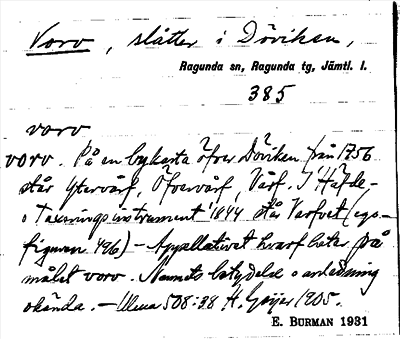 Vorv, slåtter i Döviken,
Ragunda sn, Ragunda tg, Jämtl. l.
385
vorv
vorv. På en bykarta öfver Döviken från 1756
står Ytervarf, Öfvervarf, Varf. I Häfde-
o Taxeringsinstrument 1844 står Varfvet (egs-
figuren 496) – Appellativet hvarf heter på
målet vorv. Namnets betydelse o anledning
okända. – Ulma 508:38 H. Geijer 1905.
E. BURMAN 1931